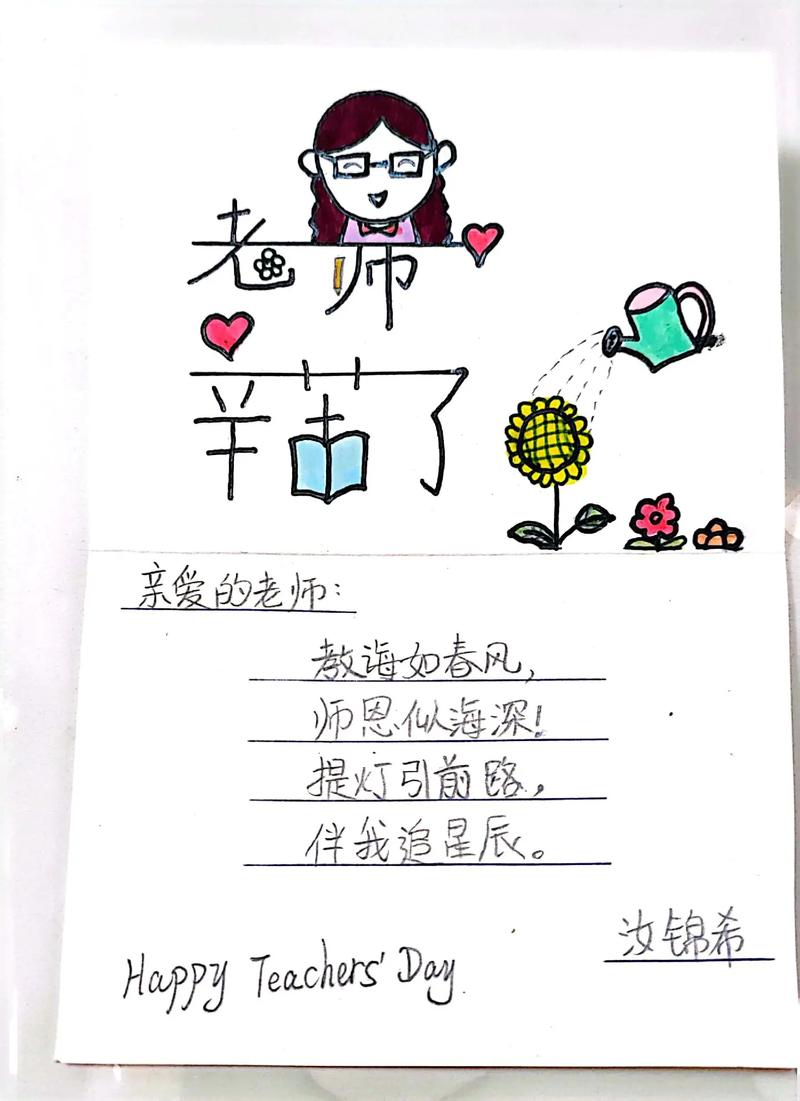 老师
辛苦了
亲爱的老师：
教诲如春风，
师恩似海深！
提灯引前路，
伴我追星辰。
汝锦希
Happy Teachers' Day